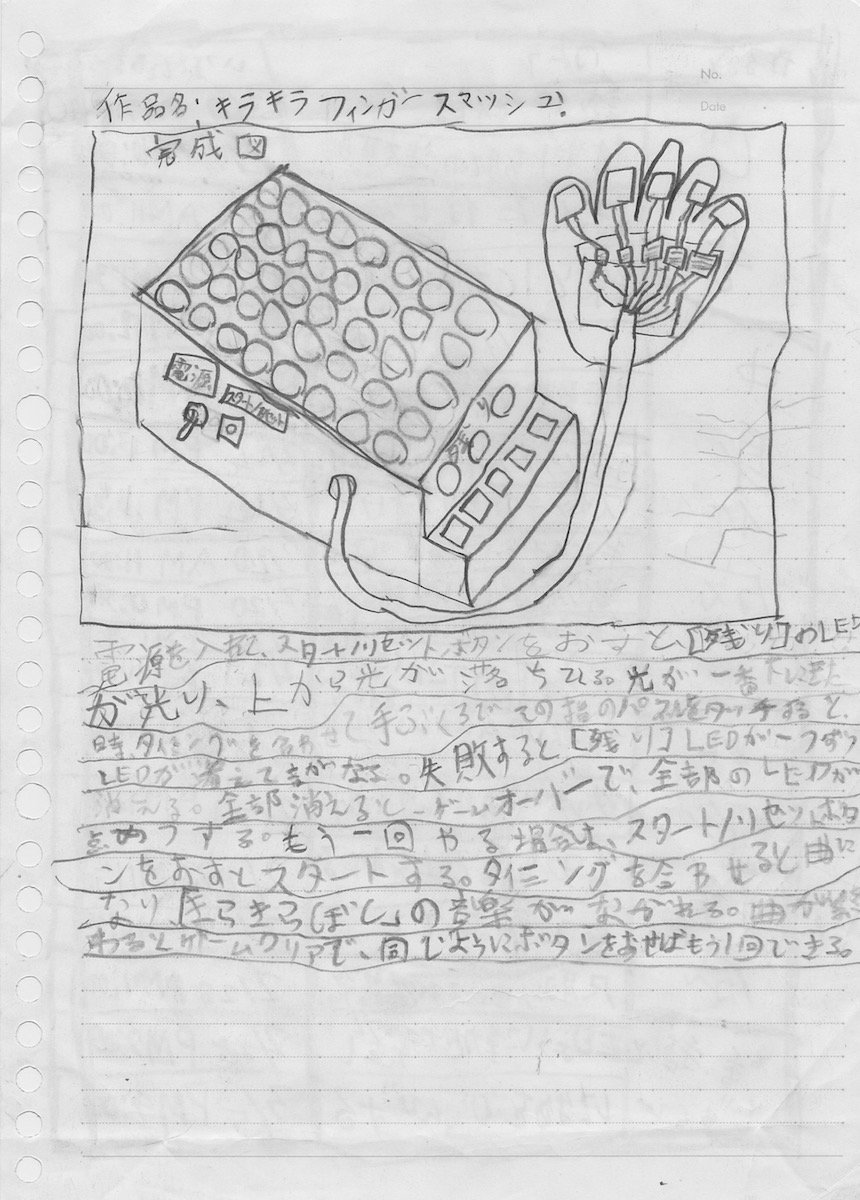 No.
Date
作品名:キラキラフィンガースマッシュ!
完成図
電源
スタート/リセット
残り
電源を入れて、スタート/リセットボタンをおすと、[残り]のLED
が光り、上から光が落ちてくる。光が一番下に来た
時、タイミングを合わせて手ぶくろでその指のパネルをタッチすると、
LEDが消えて音がなる。失敗すると[残り]LEDが一つずつ
消える。全部消えるとゲームオーバーで、全部のLEDが
点めつする。もう一回やる場合は、スタート/リセットボタ
ンをおすとスタートする。タイミングを合わせると曲に
なり「きらきらぼし」の音楽がながれる。曲が終
わるとゲームクリアで、同じようにボタンをおせばもう1回できる。